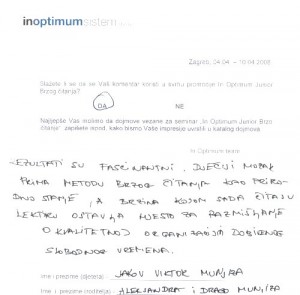 inoptimumsistem
Zagreb, 04.04. - 10.04.2008.
Slažete li se da se Vaš komentar koristi u svrhu promocije In Optimum Junior
Brzog čitanja?
DA NE
Najljepše Vas molimo da dojmove vezane za seminar „In Optimum Junior Brzo
čitanje" zapišete ispod, kako bismo Vaše impresije uvrstili u katalog dojmova.
In Optimum team
REZULTATI SU FASCINANTNI, DJEČJI MOZAK
PRIMA METODU BRZOG ČITANJA KAO PRIRO-
DNO STANJE, A BRZINA KOJOM SADA ČITAJU
LEKTIRU OSTAVLJA MJESTO ZA RAZMIŠLJANJE
O KVALITETNOJ ORGANIZACIJI DOBIVENOG
SLOBODNOG VREMENA.
Ime i prezime (djeteta): JAKOV VIKTOR
Ime i prezime (roditelja): ALEKSANDRA I DRAGO